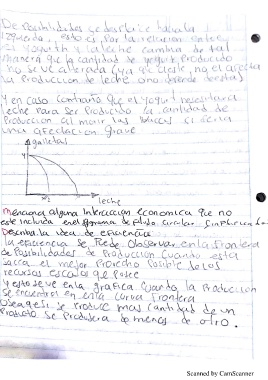 De Posibilidades se desplace hacia la
izquierda, esto es por la relacion entre
el yogurth y la leche cambia de tal
manera que la cantidad de yogurt producido
no se ve alterada (ya que este no afecta
la Produccion de leche
y en caso contrario que el yogurt necesitara
leche para ser Producido la cantidad de
Produccion al morir las vacas si seria
una afectacion grave
galletas
leche
Menciona alguna Interaccion economica que no
este incluida en el diagrama de flujo circular
Describa la idea de eficiencia
la eficiencia se Puede Observar en la frontera
de Posibilidades de Produccion Cuando esta
saca el mejor Provecho Posible de los
recursos escasos que posee
y esto se ve en la grafica cuando la Produccion
se encuentra en esta curva frontera
O sea que si se produce mas cantidad de un
Producto se Producira de menos de otro.
Scanned by CamScanner